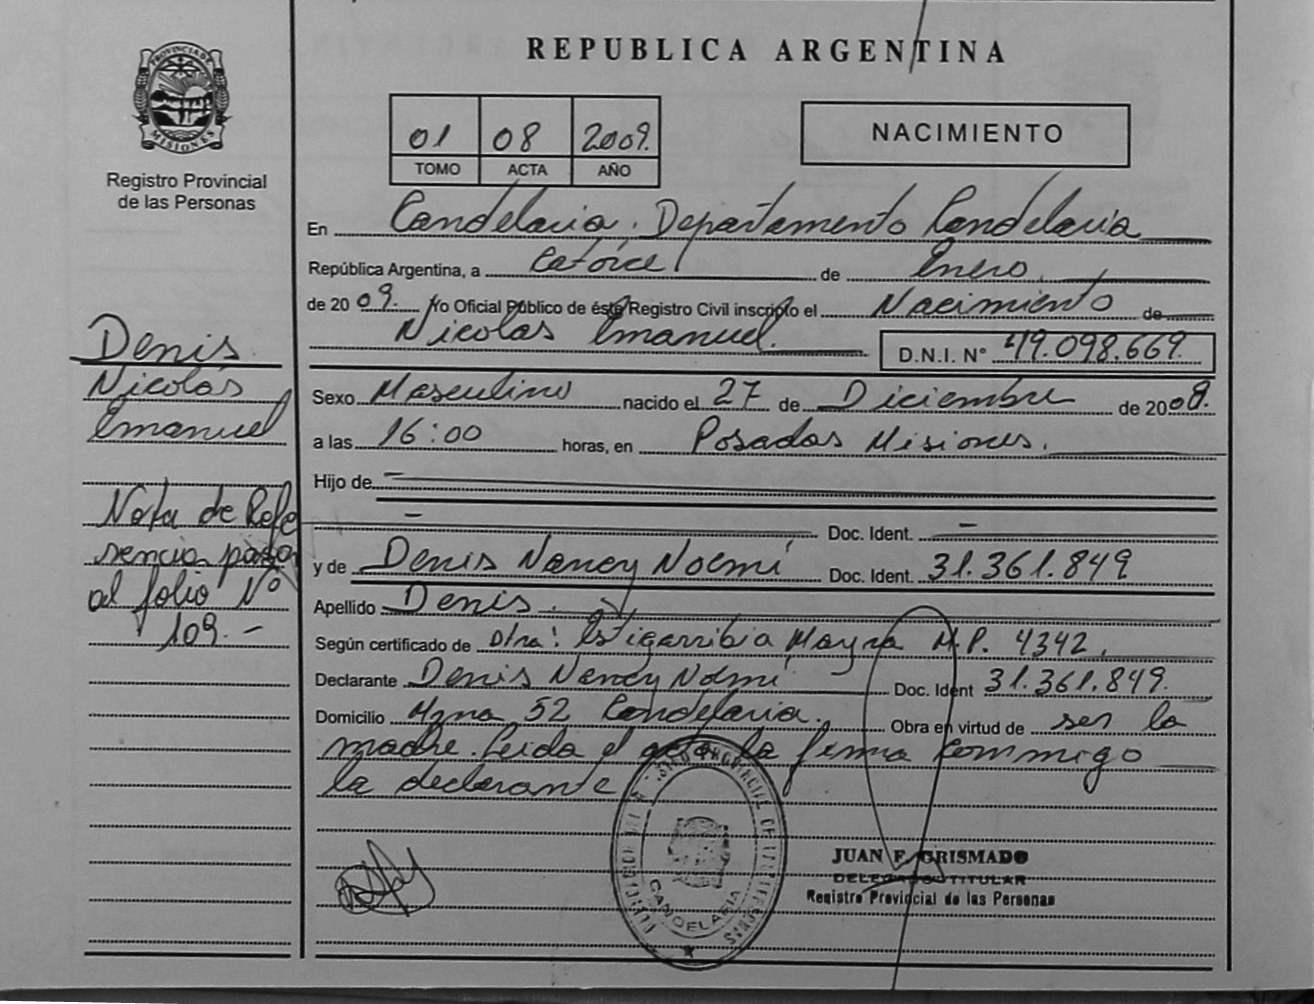 REPUBLICA ARGENTINA
PROVINCIA DE MISIONES
Registro Provincial
de las Personas
01 08 2009.
TOMO ACTA AÑO
NACIMIENTO
En Candelaria. Departamento Candelaria
República Argentina, a Catorce de Enero
de 2009. Yo Oficial Público de éste Registro Civil inscripto el Nacimiento de
Nicolas Emanuel. D.N.I. N° 49.098.669.
Sexo Masculino nacido el 27 de Diciembre de 2008.
a las 16:00 horas, en Posadas Misiones.
Hijo de -
- Doc. Ident. -
y de Denis Nancy Noemí Doc. Ident. 31.361.849
Apellido Denis.
Según certificado de Dra: Estigarribia Mayra M.P. 4342.
Declarante Denis Nancy Nomí Doc. Ident 31.361.849.
Domicilio Mzna 52 Candelaria. Obra en virtud de ser la
madre. Leida el acta la firma conmigo
la declarante
Denis
Nicolás
Emanuel
Nota de Refe
rencia pasa
al folio N°
109.-
CANDELARIA
JUAN F. GRISMADO
DELEGADO TITULAR
Registro Provincial de las Personas